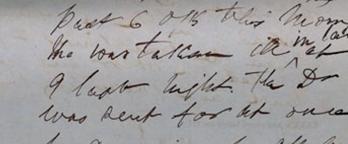 Past 6 o'k this morn
He was taken ill in at
9 last night. The Dr
was sent for at once